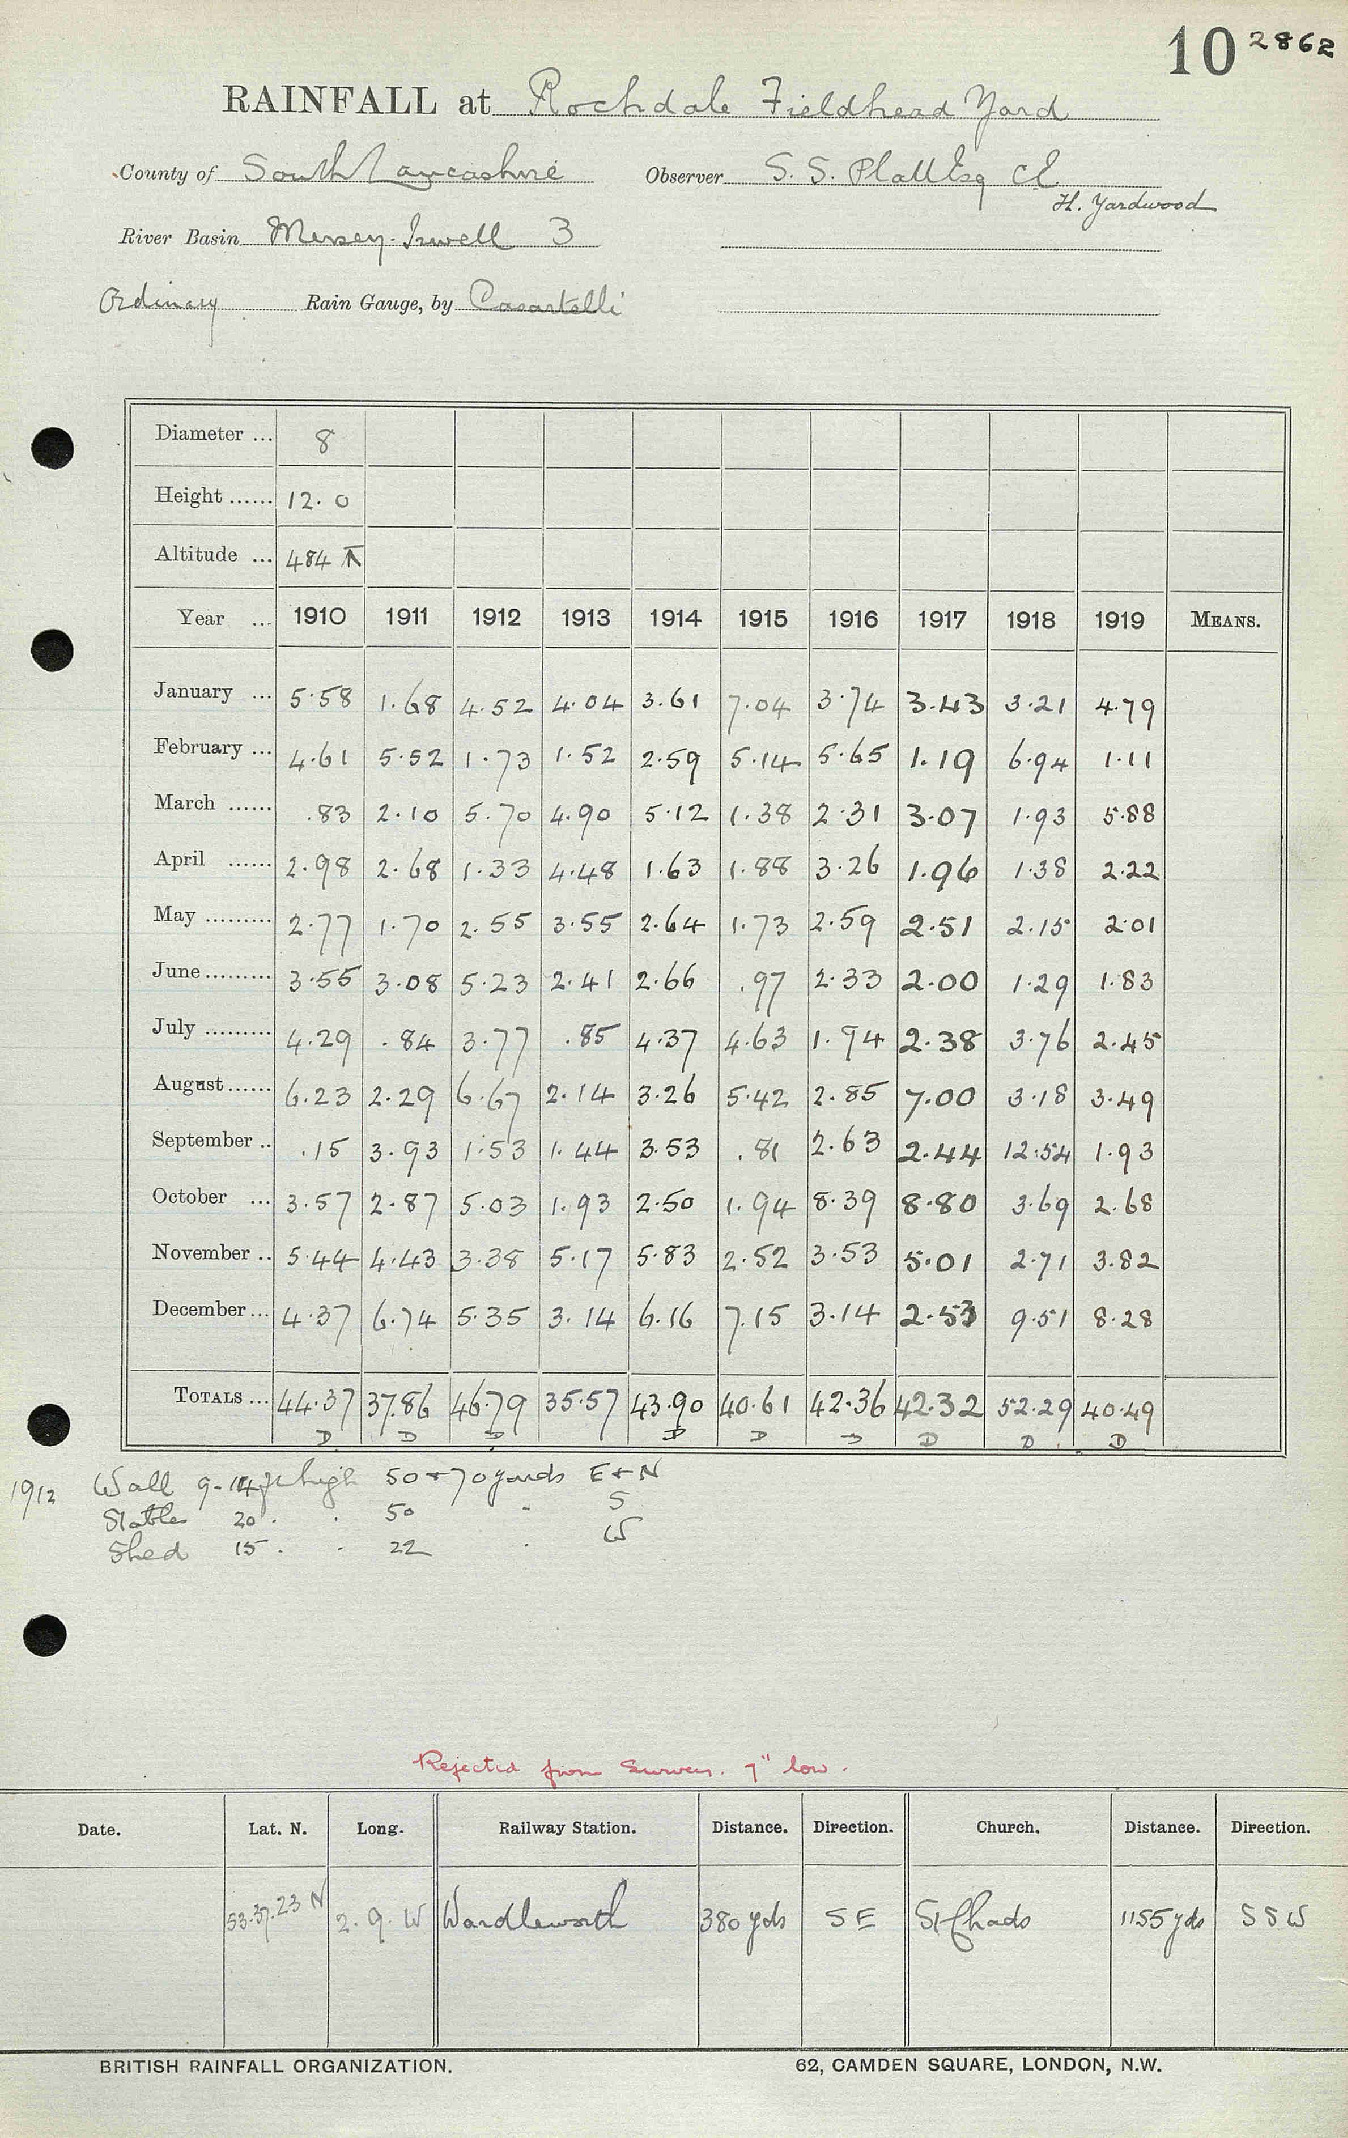 10 2862
RAINFALL at Rochdale Fieldhead Yard
County of South Lancashire Observer S. S. Platt Esq CE
H. Yardwood
River Basin Mersey-Irwell 3
Ordinary Rain Gauge, by Casartelli
Diameter ... 8
Height ...... 12.0
Altitude ... 484
Year ... 1910 1911 1912 1913 1914 1915 1916 1917 1918 1919 MEANS.
January ... 5.58 1.68 4.52 4.04 3.61 7.04 3.74 3.43 3.21 4.79
February ... 4.61 5.52 1.73 1.52 2.59 5.14 5.65 1.19 6.94 1.11
March ...... .83 2.10 5.70 4.90 5.12 1.38 2.31 3.07 1.93 5.88
April ...... 2.98 2.68 1.33 4.48 1.63 1.88 3.26 1.96 1.38 2.22
May ......... 2.77 1.70 2.55 3.55 2.64 1.73 2.59 2.51 2.15 2.01
June ......... 3.55 3.08 5.23 2.41 2.66 .97 2.33 2.00 1.29 1.83
July ......... 4.29 .84 3.77 .85 4.37 4.63 1.94 2.38 3.76 2.45
August ...... 6.23 2.29 6.67 2.14 3.26 5.42 2.85 7.00 3.18 3.49
September .. .15 3.93 1.53 1.44 3.53 .81 2.63 2.44 12.54 1.93
October ... 3.57 2.87 5.03 1.93 2.50 1.94 8.39 8.80 3.69 2.68
November .. 5.44 4.43 3.38 5.17 5.83 2.52 3.53 5.01 2.71 3.82
December ... 4.37 6.74 5.35 3.14 6.16 7.15 3.14 2.53 9.51 8.28
TOTALS ... 44.37 37.86 46.79 35.57 43.90 40.61 42.36 42.32 52.29 40.49
D D D D D D D D D
1912 Wall 9-14 ft high 50 + 70 yards E + N
Stables 20 . . 50 " S
Shed 15 . . 22 . W
Rejected from Survey. 7" low.
Date. Lat. N. Long. Railway Station. Distance. Direction. Church. Distance. Direction.
53.37.23 N 2.9.W Wardleworth 380 yds SE St Chads 1155 yds SSW
BRITISH RAINFALL ORGANIZATION. 62, CAMDEN SQUARE, LONDON, N.W.